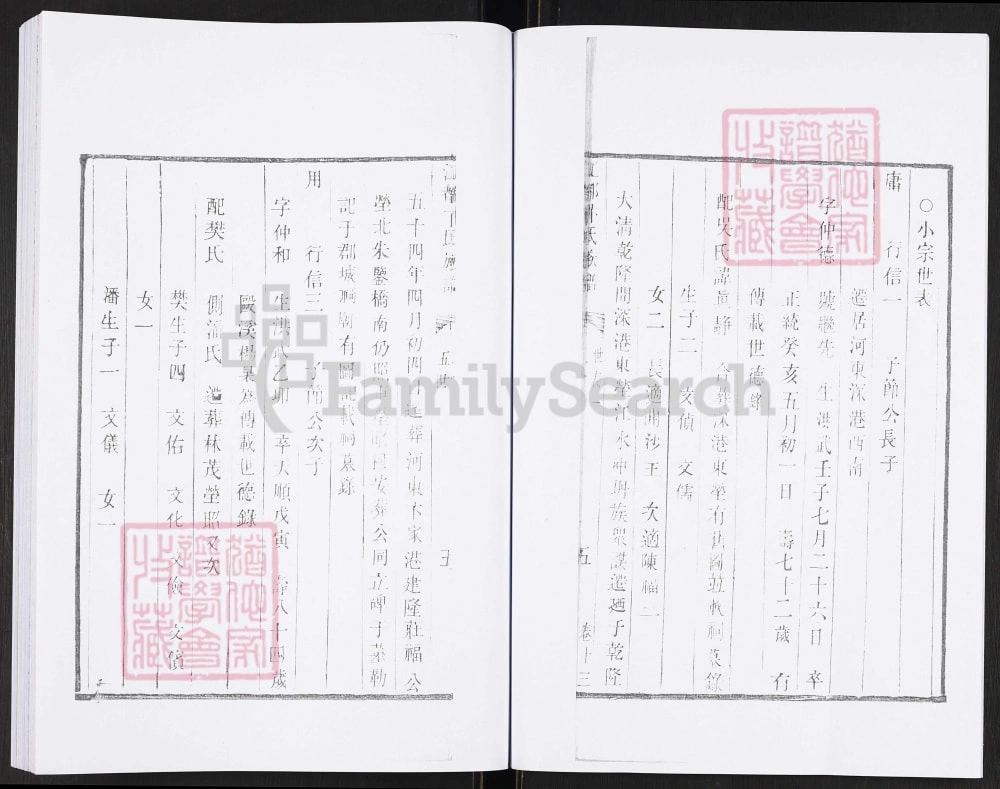 ○小宗世表
庸 行信一 子節公長子
遷居河東深港西南
字仲德 號繼先 生洪武壬子七月二十六日 卒
正統癸亥五月初一日 壽七十二歲 有
傳載世德錄
配吳氏諱 靜 合葬深港東塋有舊圖 載祠墓錄
生子二 文禎 文儒
女二 長適 沙王 次適陳福二
大清乾隆間深港東塋江水冲坍族眾議遷迺于乾隆
世表 五 卷十三
五十四年四月初四日遷葬河東朱家港建隆莊福公
塋北朱鑒橋南仍照 昭穆安葬公同立碑于墓勒
記于郡城祠廟有圖 載祠墓錄
用 行信三 子節公次子
字仲和 生洪武乙卯 卒天順戊寅 壽八十四歲
殿溪楊杲為傳載世德錄
配樊氏 側潘氏 遷葬林茂塋昭又次
樊生子四 文佑 文化 文儉 文償
女一
潘生子一 文儀 女一
猶他家譜學會收藏
猶他家譜學會收藏
FamilySearch